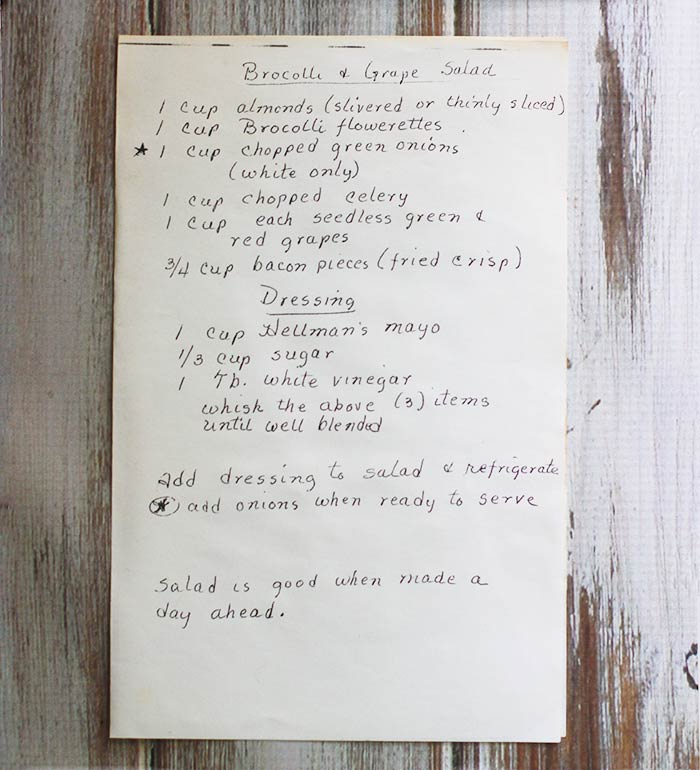 Brocolli & Grape Salad
1 cup almonds (slivered or thinly sliced)
1 cup Brocolli flowerettes.
★ 1 cup chopped green onions
(white only)
1 cup chopped celery
1 cup each seedless green &
red grapes
3/4 cup bacon pieces (fried crisp)
Dressing
1 cup Hellman's mayo
1/3 cup sugar
1 Tb. white vinegar
whisk the above (3) items
until well blended
add dressing to salad & refrigerate
★ add onions when ready to serve
Salad is good when made a
day ahead.